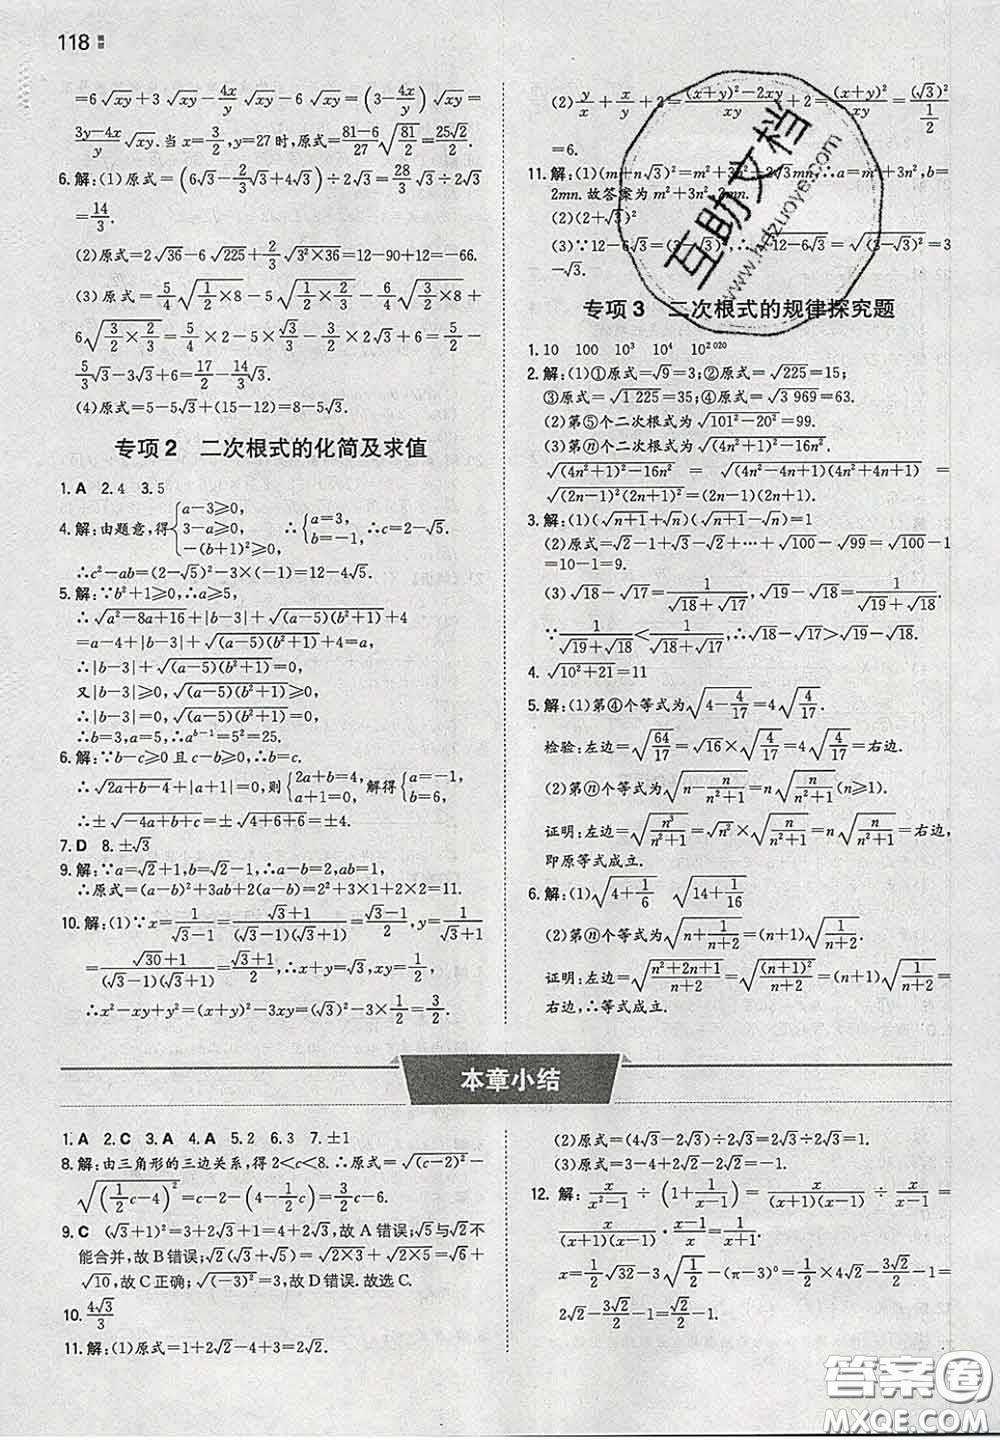 118
=6√xy+3√xy-4x/y√xy-6√xy=(3-4x/y)√xy=
(3y-4x)/y√xy.当x=3/2,y=27时,原式=(81-6)/27√(81/2)=25√2/2.
6.解:(1)原式=(6√3-2/3√3+4√3)÷2√3=28/3√3÷2√3
=14/3.
(2)原式=2√36-6√225+2/3√(3²×36)=12-90+12=-66.
(3)原式=5/4×√(1/2×8)-5/4√(1/3×8)-
6√(1/2×8)+6√(1/3×8)
(4)原式=5-5√3+(15-12)=8-5√3.
专项2 二次根式的化简及求值
1.A 2.4 3.5
4.解:由题意,得{a-3≥0, 3-a≥0, -(b+1)²≥0, ∴{a=3, b=-1, ∴c=2-√5.
∴c²-ab=(2-√5)²-3×(-1)=12-4√5.
5.解:∵b²+1≥0,∴a≥5,
∴√(a²-8a+16)+|b-3|+√((a-5)(b²+1))+4
=a-4+|b-3|+√((a-5)(b²+1))+4=a,
∴|b-3|+√((a-5)(b²+1))=0,
又|b-3|≥0,√((a-5)(b²+1))≥0,
∴|b-3|=0,√((a-5)(b²+1))=0,
∴b=3,a=5,∴aᵇ⁻¹=5²=25.
6.解:∵b-c≥0且c-b≥0,∴b=c.
∴√(2a+b-4)+|a+1|=0,则{2a+b=4, a+1=0, 解得{a=-1, b=6,
∴±√(-4a+b+c)=±√(4+6+6)=±4.
7.D 8.±√3
9.解:∵a=√2+1,b=√2-1,∴a-b=2,ab=1,
∴原式=(a-b)²+3ab+2(a-b)=2²+3×1+2×2=11.
10.解:(1)∵x=1/(√3-1)=(√3+1)/((√3-1)(√3+1))=(√3+1)/2,y=1/(√3+1)
=(√3-1)/((√3-1)(√3+1))=(√3-1)/2,∴x+y=√3,xy=1/2,
∴x²-xy+y²=(x+y)²-3xy=(√3)²-3×1/2=3/2.
(2)y/x+x/y+2=((x+y)²-2xy)/xy+2=(x+y)²/xy=(√3)²/(1/2)
=6.
11.解:(1)(m+n√3)²=m²+3n²+2√3mn,∴a=m²+3n²,b=
2mn.故答案为m²+3n²,2mn.
(2)(2+√3)²
(3)∵12-6√3=(3-√3)²,∴√(12-6√3)=√((3-√3)²)=3
-√3.
专项3 二次根式的规律探究题
1.10 100 10³ 10⁴ 10²⁰²⁰
2.解:(1)①原式=√9=3;②原式=√225=15;
③原式=√1 225=35;④原式=√3 969=63.
(2)第⑤个二次根式为√(101²-20²)=99.
(3)第ⓝ个二次根式为√((4n²+1)²-16n²).
√((4n²+1)²-16n²)=√((4n²-4n+1)(4n²+4n+1))=
√((2n-1)²(2n+1)²)=(2n-1)(2n+1)
3.解:(1)(√(n+1)+√n)(√(n+1)-√n)=1
(2)原式=√2-1+√3-√2+…+√100-√99=√100-1
=10-1=9.
(3)√18-√17=1/(√18+√17),√19-√18=1/(√19+√18).
∵1/(√19+√18)<1/(√18+√17),∴√18-√17>√19-√18.
4.√(10²+21)=11
5.解:(1)第④个等式为√(4-4/17)=4√(4/17).
检验:左边=√(64/17)=√16×√(4/17)=4√(4/17)=右边.
(2)第ⓝ个等式为√(n-n/(n²+1))=n√(n/(n²+1)).
证明:左边=√(n³/(n²+1))=√n²×√(n/(n²+1))=n√(n/(n²+1))=右边,
即原等式成立.
6.解:(1)√(4+1/6) √(14+1/16)
(2)第ⓝ个等式为√(n+1/(n+2))=(n+1)√(1/(n+2)).
证明:左边=√((n²+2n+1)/(n+2))=√((n+1)²/(n+2))=(n+1)√(1/(n+2))=
右边,∴等式成立.
本章小结
1.A 2.C 3.A 4.A 5.2 6.3 7.±1
8.解:由三角形的三边关系,得2<c<8.∴原式=√((c-2)²)-
√((1/2c-4)²)=c-2-(4-1/2c)=3/2c-6.
9.C (√3+1)²=3+2√3+1=4+2√3,故A错误;√5与√2不
能合并,故B错误;√2(√3+√5)=√(2×3)+√(2×5)=√6+
√10,故C正确;√((-3)²)=3,故D错误.故选C.
10.4√3/3
11.解:(1)原式=1+2√2-4+3=2√2.
(2)原式=(4√3-2√3)÷2√3=2√3÷2√3=1.
(3)原式=3-4+2√2-√2=√2-1.
12.解:x/(x²-1)÷(1+1/(x-1))=x/((x+1)(x-1))÷x/(x-1)=
x/((x+1)(x-1))·(x-1)/x=1/(x+1).
x=1/2√32-3√(1/2)-(π-3)⁰=1/2×4√2-3√2/2-1=
2√2-3√2/2-1=√2/2-1.
互助文档
www.hdzuoye.com
答案圈
MXQE.COM